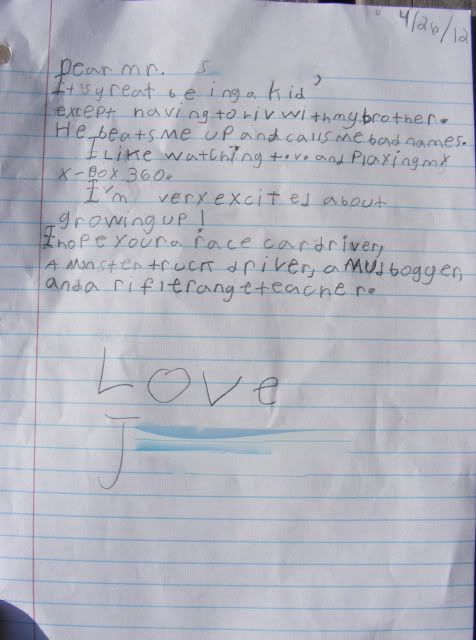 4/26/12
Dear mr. S
It's great being a kid,
except having to liv with my brother.
He beats me up and calls me bad names.
I like watching t.v. and Playing my
X-BOX 360.
I'm very excited about
growing up!
I hope your a race car driver,
A Monster truck driver, a Mud bogger,
and a rifil range teacher.
Love
J